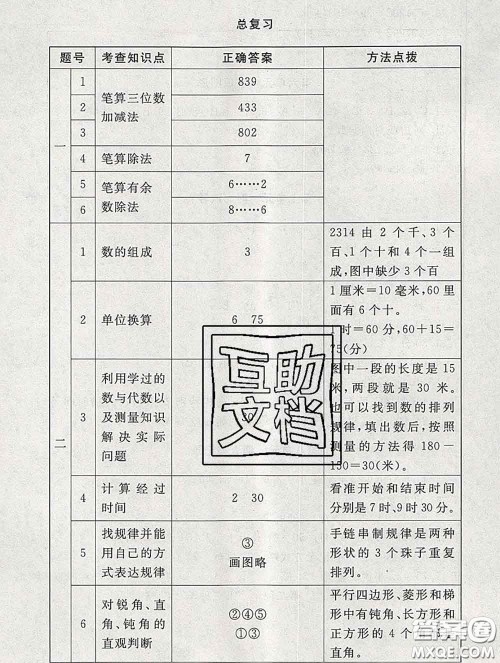 总复习
题号 考查知识点 正确答案 方法点拨
一
1 笔算三位数加减法 839
2 433
3 802
4 笔算除法 7
5 笔算有余数除法 6……2
6 8……6
二
1 数的组成 3
2314 由 2 个千、3 个
百、1 个十和 4 个一组
成,图中缺少 3 个百
2 单位换算 6 75
1 厘米=10 毫米,60 里
面有 6 个十。
1 时=60 分,60+15=
75(分)
3
利用学过的
数与代数以
及测量知识
解决实际
问题
图中一段的长度是 15
米,两段就是 30 米。
也可以找到数的排列
规律,填出数后,按照
测量的方法得 180-
150=30(米)。
4
计算经过
时间
2 30
看准开始和结束时间
分别是 7 时、9 时 30 分。
5
找规律并能
用自己的方
式表达规律
③
画图略
手链串制规律是两种
形状的 3 个珠子重复
排列。
6
对锐角、直
角、钝角的
直观判断
②④⑤
①③
平行四边形、菱形和梯
形中有钝角、长方形和
正方形的 4 个
直角。
互助
文档
答案圈
MXQE.COM